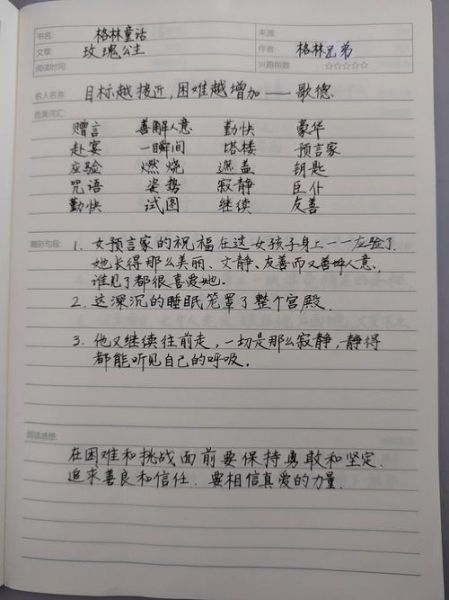 书名: 格林童话 来源:
文章: 玫瑰公主 作者: 格林兄弟
阅读时间: 兴趣指数 ☆☆☆☆☆
名人名言: 目标越接近,困难越增加——歌德
优美词汇:
赠言 善解人意 勤快 豪华
赴宴 一瞬间 塔楼 预言家
应验 燃烧 遮盖 钥匙
咒语 姿势 寂静 巨仆
勤快 试图 继续 友善
精彩句段: 1. 女预言家的祝福在这女孩子身上一一应验了.
她长得那么美丽、文静、友善而又善解人意,
谁见了都很喜爱她.
2. 这深沉的睡眠笼罩了整个宫殿.
3. 他又继续往前走,一切是那么寂静,静得
都能听见自己的呼吸.
阅读感想:
在困难和挑战面前要保持勇敢和坚定.
追求善良和信任. 要相信真爱的力量.